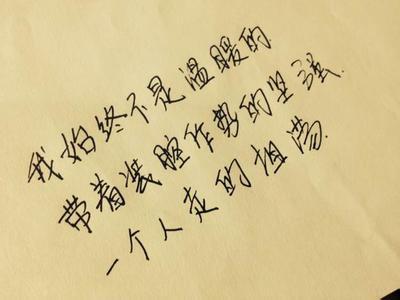 我始终不是温暖的
带着装腔作势的坚强.
一个人走的坦荡.